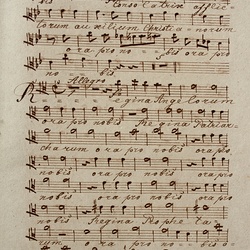 Consolatrix afflic-
torum auxilium Christianorum
ora pro no - bis ora pro
no bis
Allegro
Regina Angelorum
ora pro nobis Regina Patriar-
charum ora pro nobis ora pro
nobis ora pro nobis ora pro
nobis ora pro nobis ora pro
nobis Regina Propheta-
rum ora pro no - - bis o